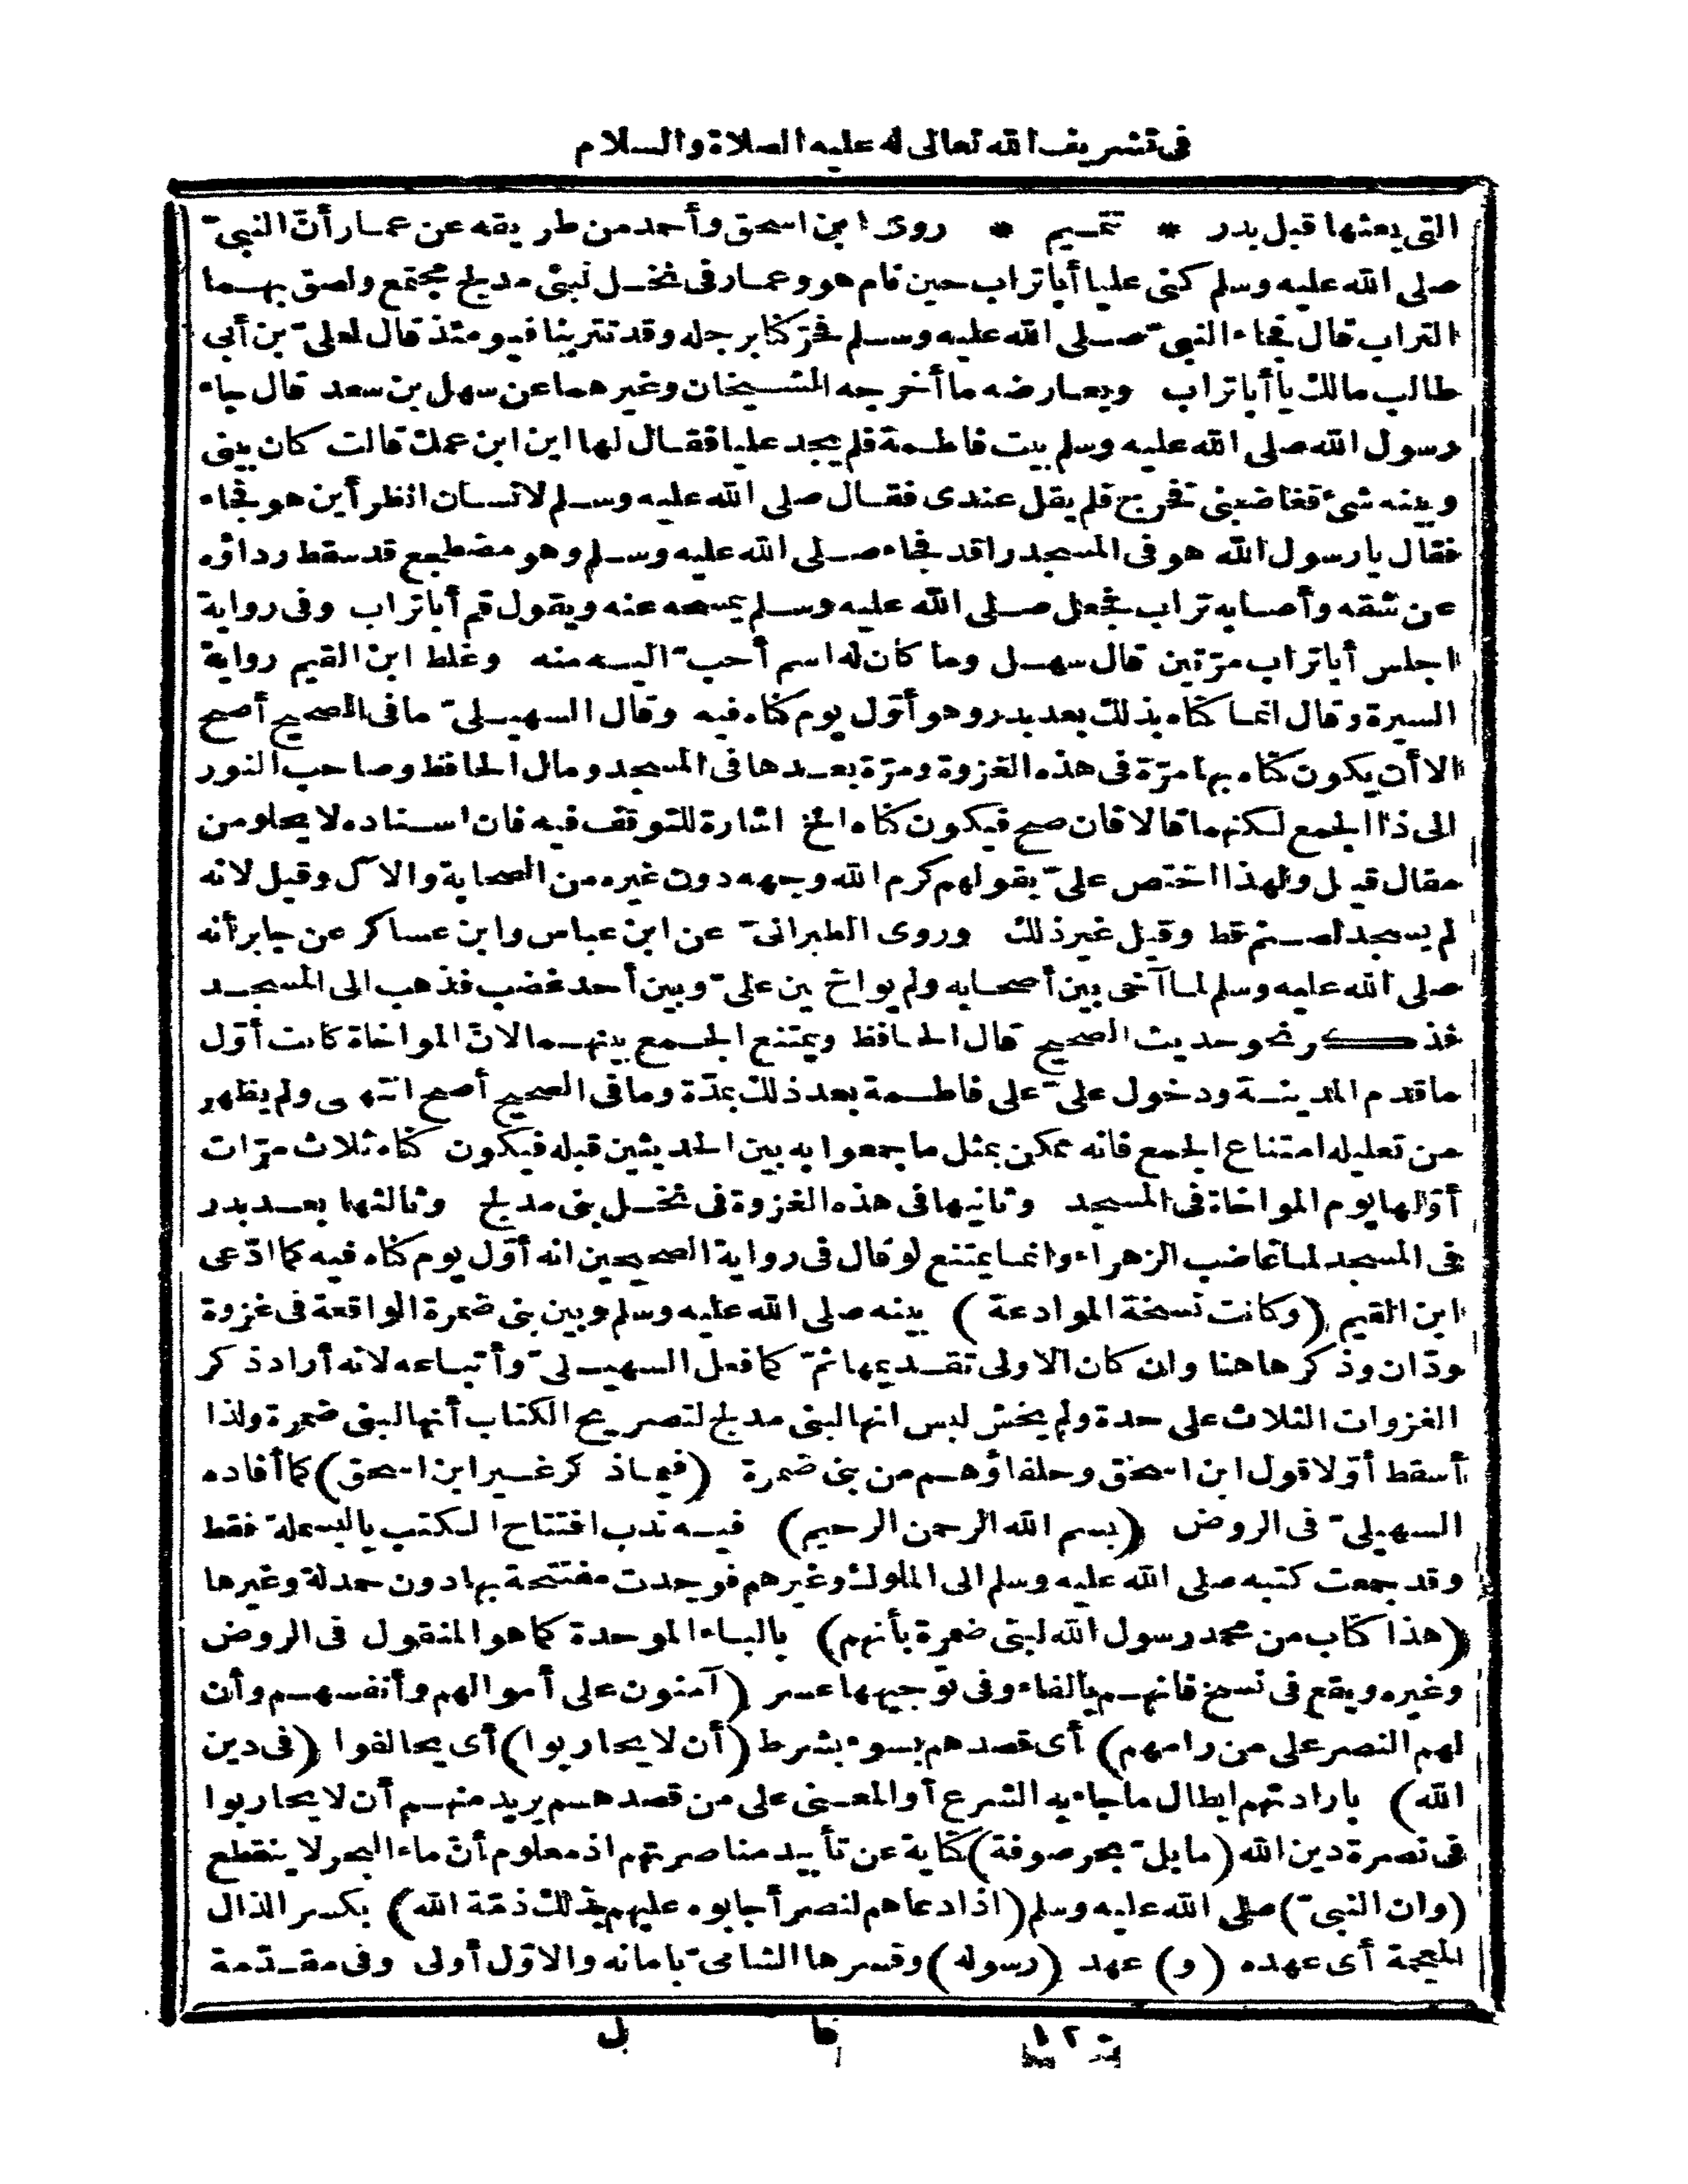 فى تشريف الله تعالى له عليه الصلاة والسلام
التى بعثها قبل بدر * تتميم * روى ابن اسحق وأحمد من طريقه عن عمار أنّ النبىّ
صلى الله عليه وسلم كنى عليا أبا تراب حين نام هو وعمار فى نخل لبنى مدلج مجتمع ولصق بهما
التراب قال فجاء النبىّ صلى الله عليه وسلم فحرّكنا برجله وقد تتربنا فيومئذ قال لعلىّ بن أبى
طالب مالك يا أبا تراب ويعارضه ما أخرجه الشيخان وغيرهما عن سهل بن سعد قال جاء
رسول الله صلى الله عليه وسلم بيت فاطمة فلم يجد عليا فقال لها اين ابن عمك قالت كان بينى
وبينه شئ فغاضبنى فخرج فلم يقل عندى فقال صلى الله عليه وسلم لانسان انظر أين هو فجاء
فقال يا رسول الله هو فى المسجد راقد فجاء صلى الله عليه وسلم وهو مضطجع قد سقط رداؤه
عن شقه وأصابه تراب فجعل صلى الله عليه وسلم يمسحه عنه ويقول قم أبا تراب وفى رواية
اجلس أبا تراب مرّتين قال سهل وما كان له اسم أحبّ اليه منه وغلط ابن القيم رواية
السيرة وقال انما كناه بذلك بعد بدر وهو أوّل يوم كناه فيه وقال السهيلىّ ما فى الصحيح أصح
الا أن يكون كناه بها مرّة فى هذه الغزوة ومرّة بعدها فى المسجد ومال الحافظ وصاحب النور
الى ذا الجمع لكنهما قالا فان صح فيكون كناه الخ اشارة للتوقف فيه فان اسناده لا يخلو من
مقال قيل ولهذا اختص علىّ بقولهم كرم الله وجهه دون غيره من الصحابة والآل وقيل لانه
لم يسجد لصنم قط وقيل غير ذلك وروى الطبرانىّ عن ابن عباس وابن عساكر عن جابر أنه
صلى الله عليه وسلم لما آخى بين أصحابه ولم يواخ بين علىّ وبين أحد غضب فذهب الى المسجد
فذكر نحو حديث الصحيح قال الحافظ ويمتنع الجمع بينهما لانّ المواخاة كانت أوّل
ما قدم المدينة ودخول علىّ على فاطمة بعد ذلك بمدّة وما فى الصحيح أصح انتهى ولم يظهر
من تعليله امتناع الجمع فانه ممكن بمثل ما جمعوا به بين الحديثين قبله فيكون كناه ثلاث مرّات
أوّلها يوم المواخاة فى المسجد وثانيها فى هذه الغزوة فى نخل بنى مدلج وثالثها بعد بدر
فى المسجد لما غاضب الزهراء وانما يمتنع لو قال فى رواية الصحيحين انه أوّل يوم كناه فيه كما ادّعى
ابن القيم (وكانت نسخة الموادعة) بينه صلى الله عليه وسلم وبين بنى ضمرة الواقعة فى غزوة
ودّان وذكرها هنا وان كان الاولى تقديمها ثمّ كما فعل السهيلىّ وأتباعه لانه أراد ذكر
الغزوات الثلاث على حدة ولم يخش لبس انها لبنى مدلج لتصريح الكتاب أنها لبنى ضمرة ولذا
أسقط أوّلا قول ابن اسحق وحلفاؤهم من بنى ضمرة (فيما ذكر غير ابن اسحق) كما أفاده
السهيلىّ فى الروض (بسم الله الرحمن الرحيم) فيه ندب افتتاح الكتب بالبسملة فقط
وقد جمعت كتبه صلى الله عليه وسلم الى الملوك وغيرهم فوجدت مفتتحة بها دون حمدلة وغيرها
(هذا كتاب من محمد رسول الله لبنى ضمرة بأنهم) بالباء الموحدة كما هو المنقول فى الروض
وغيره ويقع فى نسخ فانهم بالفاء وفى توجيهها عسر (آمنون على أموالهم وأنفسهم وأن
لهم النصر على من رامهم) أى قصدهم بسوء بشرط (أن لا يحاربوا) أى يخالفوا (فى دين
الله) بارادتهم ابطال ما جاء به الشرع أو المعنى على من قصدهم يريد منهم أن لا يحاربوا
فى نصرة دين الله (ما بلّ بحر صوفة) كناية عن تأبيد مناصرتهم اذ معلوم أنّ ماء البحر لا ينقطع
(وان النبىّ) صلى الله عليه وسلم (اذا دعاهم لنصر أجابوه عليهم بذلك ذمّة الله) بكسر الذال
المعجمة أى عهده (و) عهد (رسوله) وفسرها الشامىّ بامانه والاوّل أولى وفى مقدّمة
١٢ قا ل